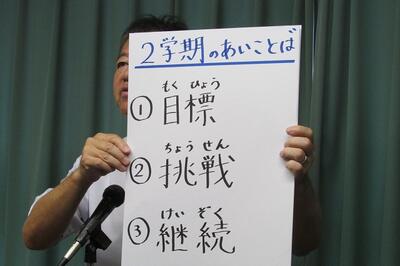 2学期のあいことば
もくひょう
①目標
ちょうせん
②挑戦
けいぞく
③継続